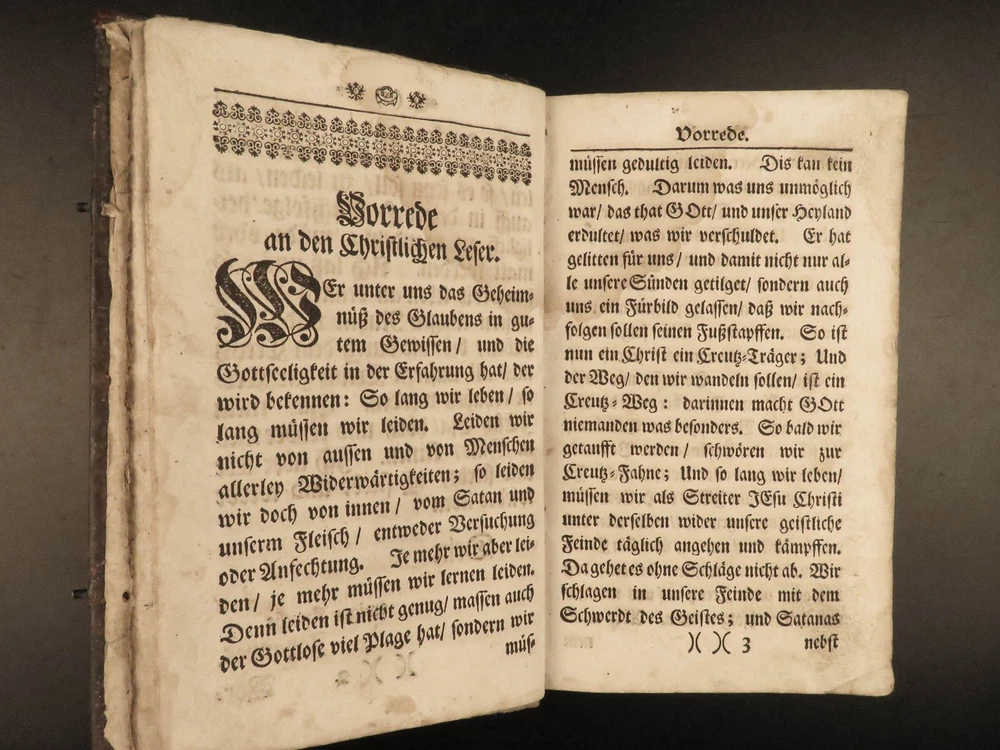 Vorrede
an den Christlichen Leser.
WEr unter uns das Geheim-
nüß des Glaubens in gu-
tem Gewissen / und die
Gottseeligkeit in der Erfahrung hat/ der
wird bekennen: So lang wir leben / so
lang müssen wir leiden. Leiden wir
nicht von aussen und von Menschen
allerley Widerwärtigkeiten; so leiden
wir doch von innen / vom Satan und
unserm Fleisch / entweder Versuchung
oder Anfechtung. Je mehr wir aber lei-
den/ je mehr müssen wir lernen leiden.
Denn leiden ist nicht genug/ massen auch
der Gottlose viel Plage hat/ sondern wir
müs-
Vorrede.
müssen gedultig leiden. Dis kan kein
Mensch. Darum was uns unmöglich
war/ das that GOtt/ und unser Heyland
erdultet/ was wir verschuldet. Er hat
gelitten für uns / und damit nicht nur al-
le unsere Sünden getilget/ sondern auch
uns ein Fürbild gelassen/ daß wir nach-
folgen sollen seinen Fußstapffen. So ist
nun ein Christ ein Creutz-Träger; Und
der Weg/ den wir wandeln sollen/ ist ein
Creutz-Weg: darinnen macht GOtt
niemanden was besonders. So bald wir
getaufft werden/ schwören wir zur
Creutz-Fahne; Und so lang wir leben/
müssen wir als Streiter JEsu Christi
unter derselben wider unsere geistliche
Feinde täglich angehen und kämpffen.
Da gehet es ohne Schläge nicht ab. Wir
schlagen in unsere Feinde mit dem
Schwerdt des Geistes; und Satanas
)( )( 3 nebst